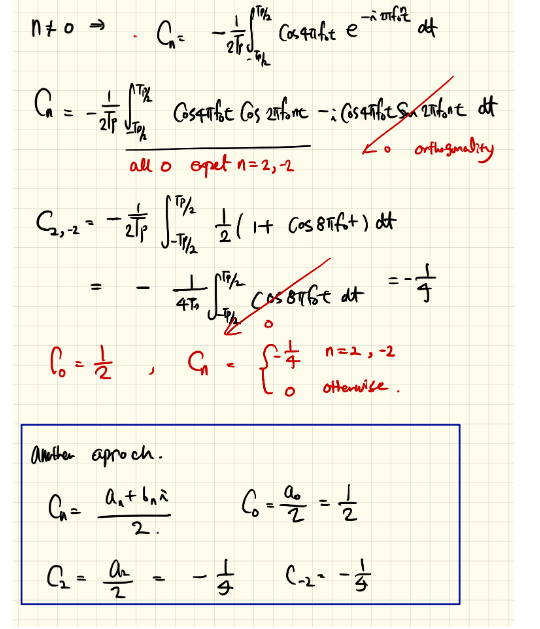 n≠0 ⇒ . Cₙ = -1/(2Tp) ∫_{-Tp/2}^{Tp/2} Cos4πf₀t e^{-i2πnf₀t} dt
Cₙ = -1/(2Tp) ∫_{-Tp/2}^{Tp/2} Cos4πf₀t Cos 2πf₀nt - i Cos4πf₀t Sin 2πf₀nt dt
all 0 expet n=2,-2
0 orthogonality
C₂,₋₂ = -1/(2Tp) ∫_{-Tp/2}^{Tp/2} 1/2 (1+ Cos8πf₀t) dt
= - 1/(4Tp) ∫_{-Tp/2}^{Tp/2} Cos 8πf₀t dt = -1/4
0
C₀ = 1/2 , Cₙ = { -1/4 n=2,-2
0 otherwise.
Another aproch.
Cₙ = (aₙ+bₙi)/2. C₀ = a₀/2 = 1/2
C₂ = a₂/2 = -1/4 C₋₂ = -1/4